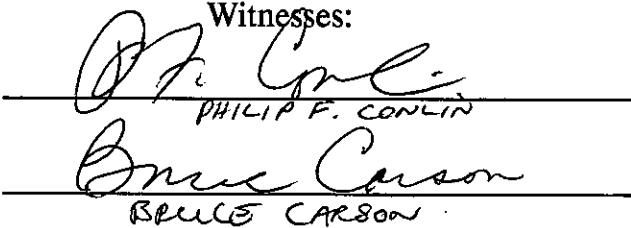 Witnesses:
P. F. Conlin
PHILIP F. CONLIN
Bruce Carson
BRUCE CARSON